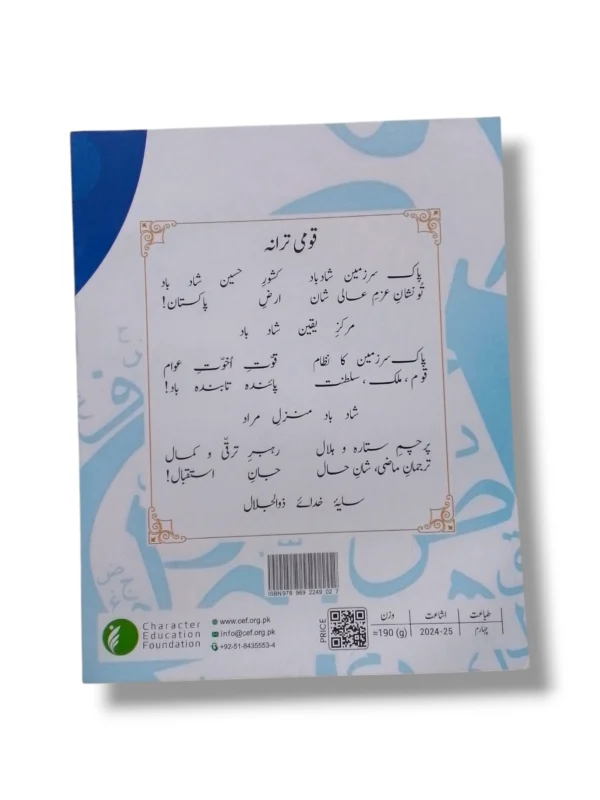 قومی ترانہ
پاک سرزمین شاد باد کشورِ حسین شاد باد
تُو نشانِ عزمِ عالی شان ارضِ پاکستان!
مرکزِ یقین شاد باد
پاک سرزمین کا نظام قوّتِ اُخوّتِ عوام
قوم، ملک، سلطنت پائندہ تابندہ باد!
شاد باد منزلِ مراد
پرچمِ ستارہ و ہلال رہبرِ ترقّی و کمال
ترجمانِ ماضی، شانِ حال جانِ استقبال!
سایۂ خدائے ذوالجلال
ISBN 978 969 2249 02 7
Character
Education
Foundation
www.cef.org.pk
info@cef.org.pk
+92-51-8435553-4
PRICE
طباعت اشاعت وزن
چہارم 2024-25 =190 (g)